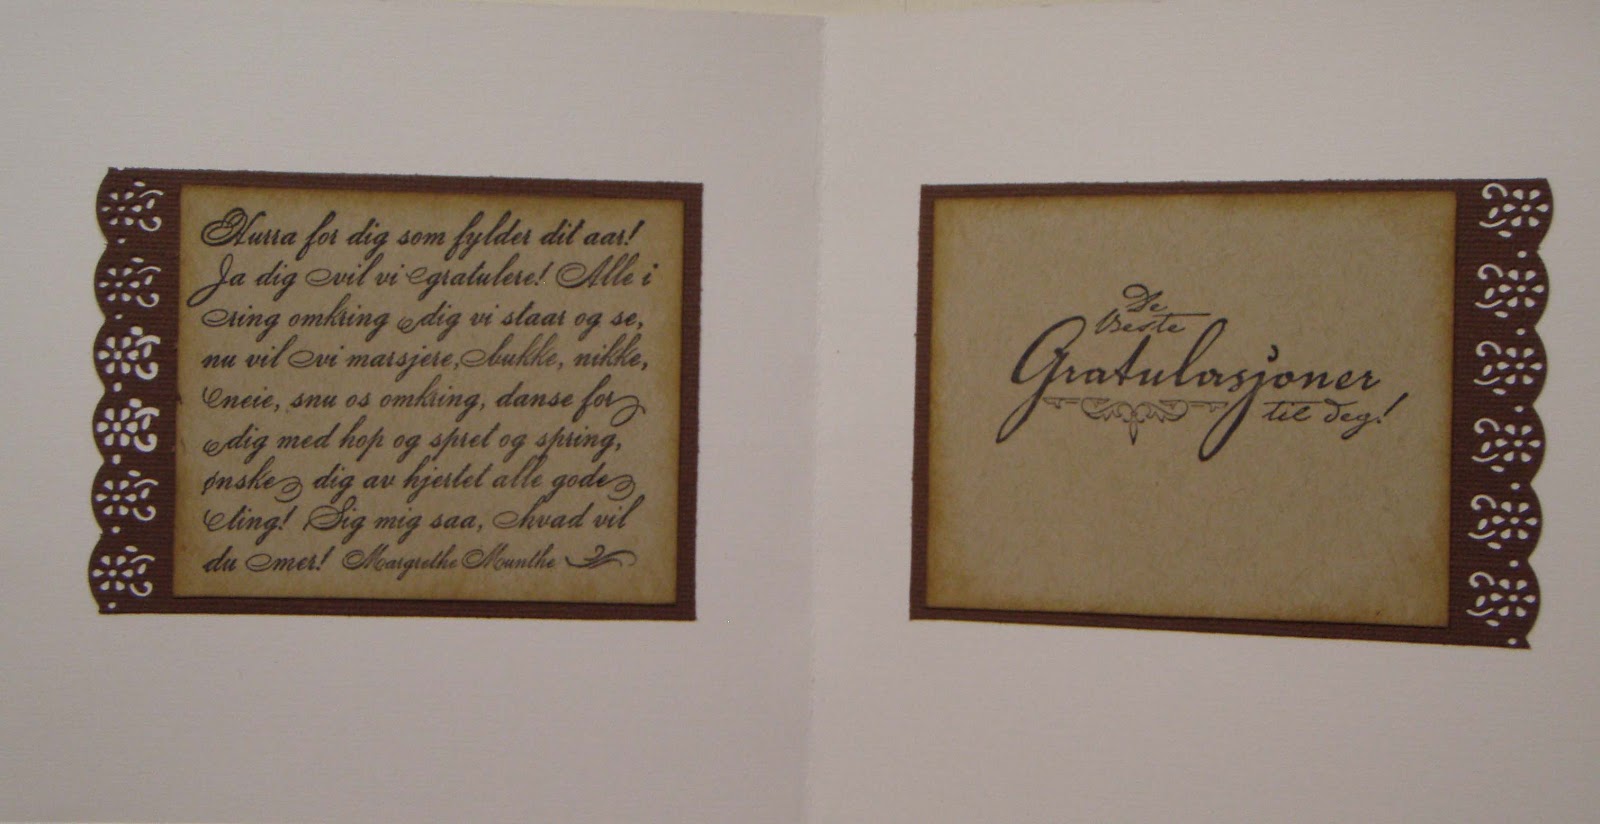 Hurra for dig som fylder dit aar!
Ja dig vil vi gratulere! Alle i
ring omkring dig vi staar og se,
nu vil vi marsjere, bukke, nikke,
neie, snu os omkring, danse for
dig med hop og spret og spring,
ønske dig av hjertet alle gode
ting! Sig mig saa, hvad vil
du mer! Margrethe Munthe
De
Beste
Gratulasjoner
til deg!